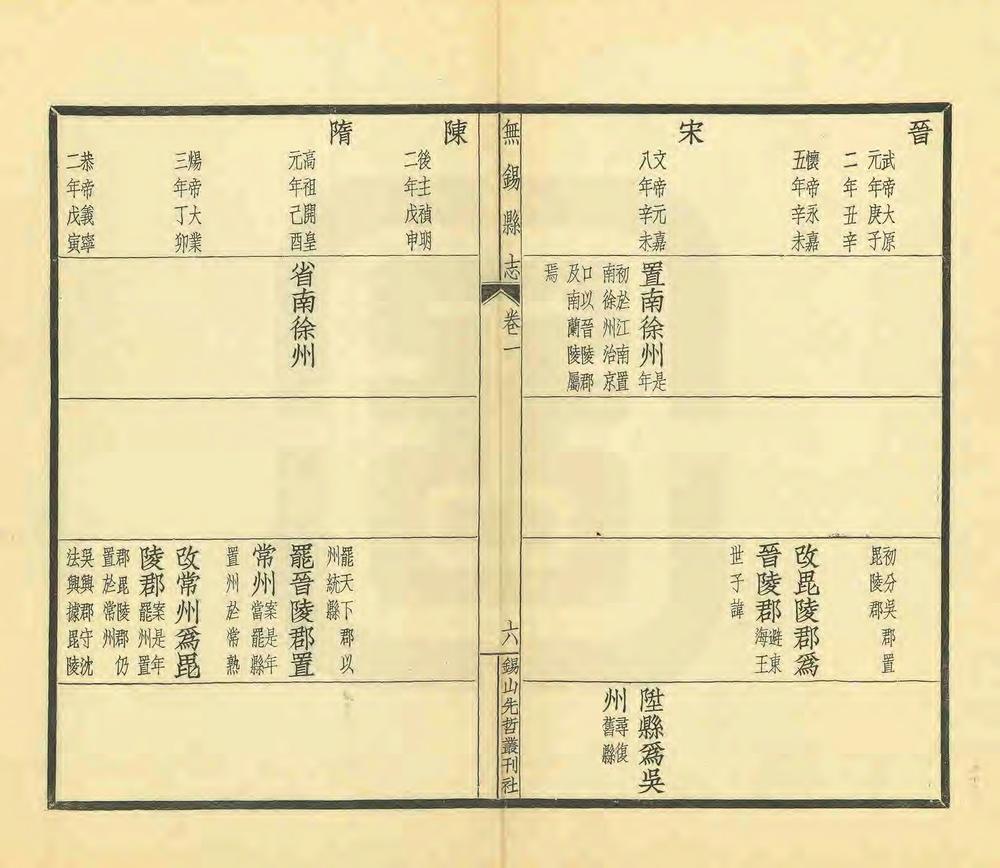 晉
武帝大原
元年庚子
二年丑辛
懷帝永嘉
五年辛未
宋
文帝元嘉
八年辛未
置南徐州是年
初於江南置
南徐州治京
口以晉陵郡
及南蘭陵屬
焉
初分吳郡置
毘陵郡
改毘陵郡爲
晉陵郡避東海王
世子諱
陞縣爲吳
州尋復舊縣
無錫縣志
卷一
六
錫山先哲叢刊社
陳
後主禎明
二年戊申
隋
高祖開皇
元年己酉
煬帝大業
三年丁卯
恭帝義寧
二年戊寅
省南徐州
罷天下郡以
州統縣
罷晉陵郡置
常州案是年當罷縣
置州於常熟
改常州爲毘
陵郡案是年罷州置
郡毘陵郡仍
置於常州
吳興郡守沈
法興據毘陵